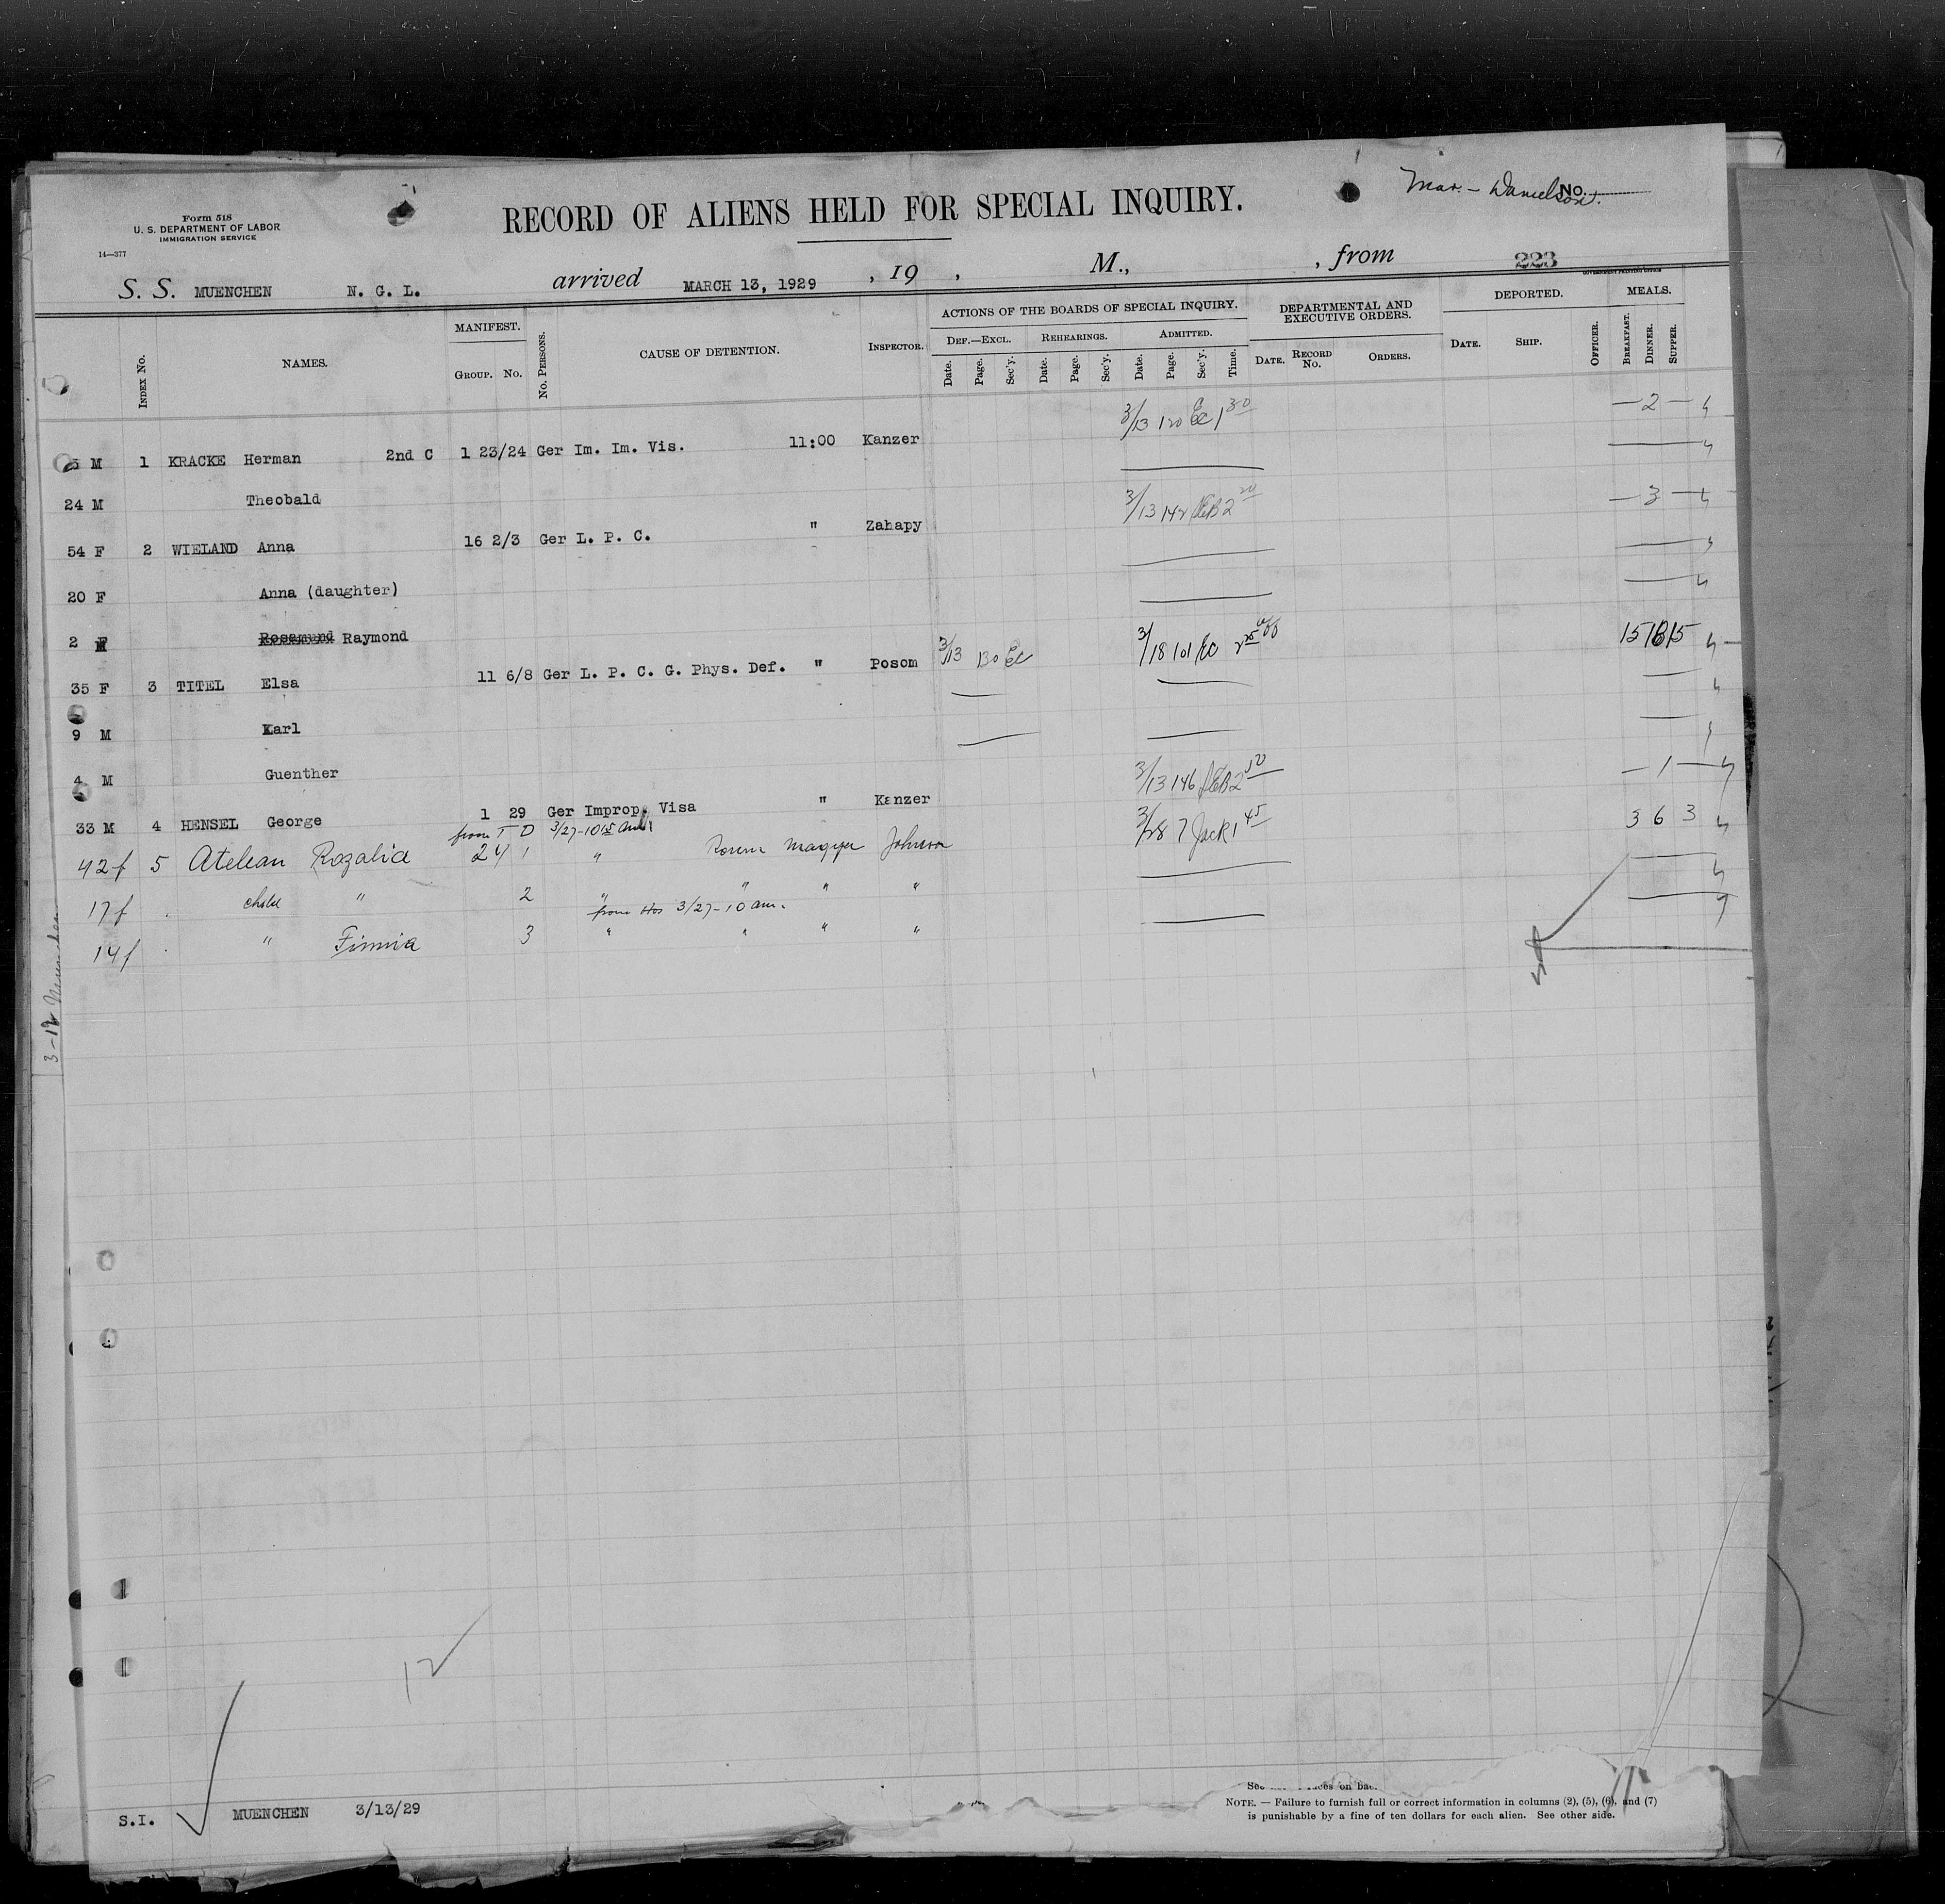 Form 518
U. S. DEPARTMENT OF LABOR
IMMIGRATION SERVICE
14—377
RECORD OF ALIENS HELD FOR SPECIAL INQUIRY.
Mar. - Danielson. No.
S. S. MUENCHEN N. G. L. arrived MARCH 13, 1929 , 19 , M., , from 223
GOVERNMENT PRINTING OFFICE
INDEX No. NAMES. MANIFEST. GROUP. No. No. PERSONS. CAUSE OF DETENTION. INSPECTOR. ACTIONS OF THE BOARDS OF SPECIAL INQUIRY. DEPARTMENTAL AND EXECUTIVE ORDERS. DEPORTED. MEALS.
DEF.—EXCL. REHEARINGS. ADMITTED.
Date. Page. Sec'y. Date. Page. Sec'y. Date. Page. Sec'y. Time. DATE. RECORD No. ORDERS. DATE. SHIP. OFFICER. BREAKFAST. DINNER. SUPPER.
5 M 1 KRACKE Herman 2nd C 1 23/24 Ger Im. Im. Vis. 11:00 Kanzer 3/13 120 EC 1 30 — 2 —
24 M Theobald
54 F 2 WIELAND Anna 16 2/3 Ger L. P. C. " Zahapy 3/13 142 2 20 — 3 —
20 F Anna (daughter)
2 Rosamund Raymond
35 F 3 TITEL Elsa 11 6/8 Ger L. P. C. G. Phys. Def. " Posom 3/13 130 EC 3/18 101 EC 15 18 15
9 M Karl
4 M Guenther
33 M 4 HENSEL George 1 29 Ger Improp. Visa " Kanzer 3/13 146 2 50 — 1 —
from T D 3/27-10 15 am
42 f 5 Atelean Rozalia 24 1 " Magyar Johnson 3/28 7 Jack 1 45 3 6 3
17 f child " 2 " " " "
from Hos 3/27-10 am.
14 f " Finnia 3 " " " "
3-12 Muenchen
12
S.I. MUENCHEN 3/13/29
NOTE. — Failure to furnish full or correct information in columns (2), (5), (6), and (7)
is punishable by a fine of ten dollars for each alien. See other side.